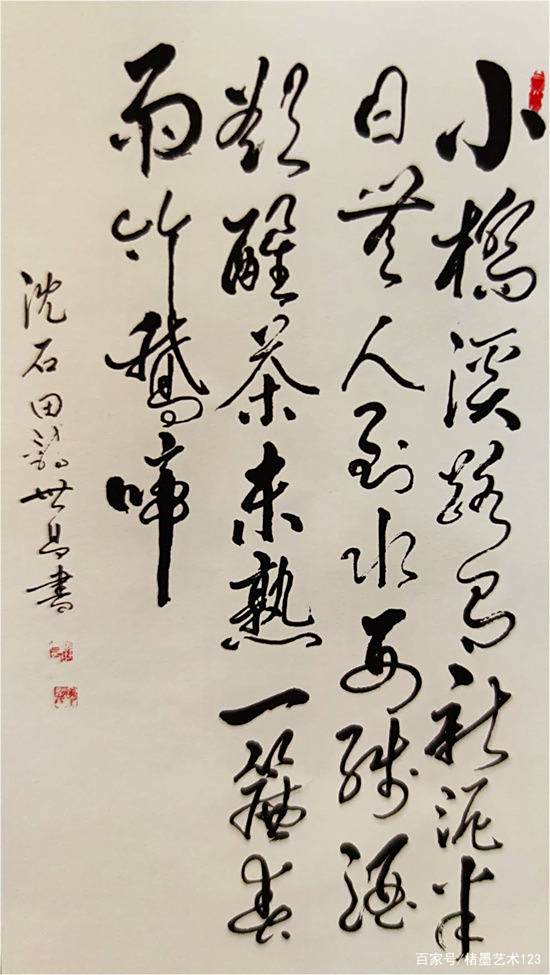 小橋溪路有新泥半
日無人到水西殘酒
欲醒茶未熟一簾春
雨竹鷄啼
沈石田詩世昌書
百家号/楮墨艺术123